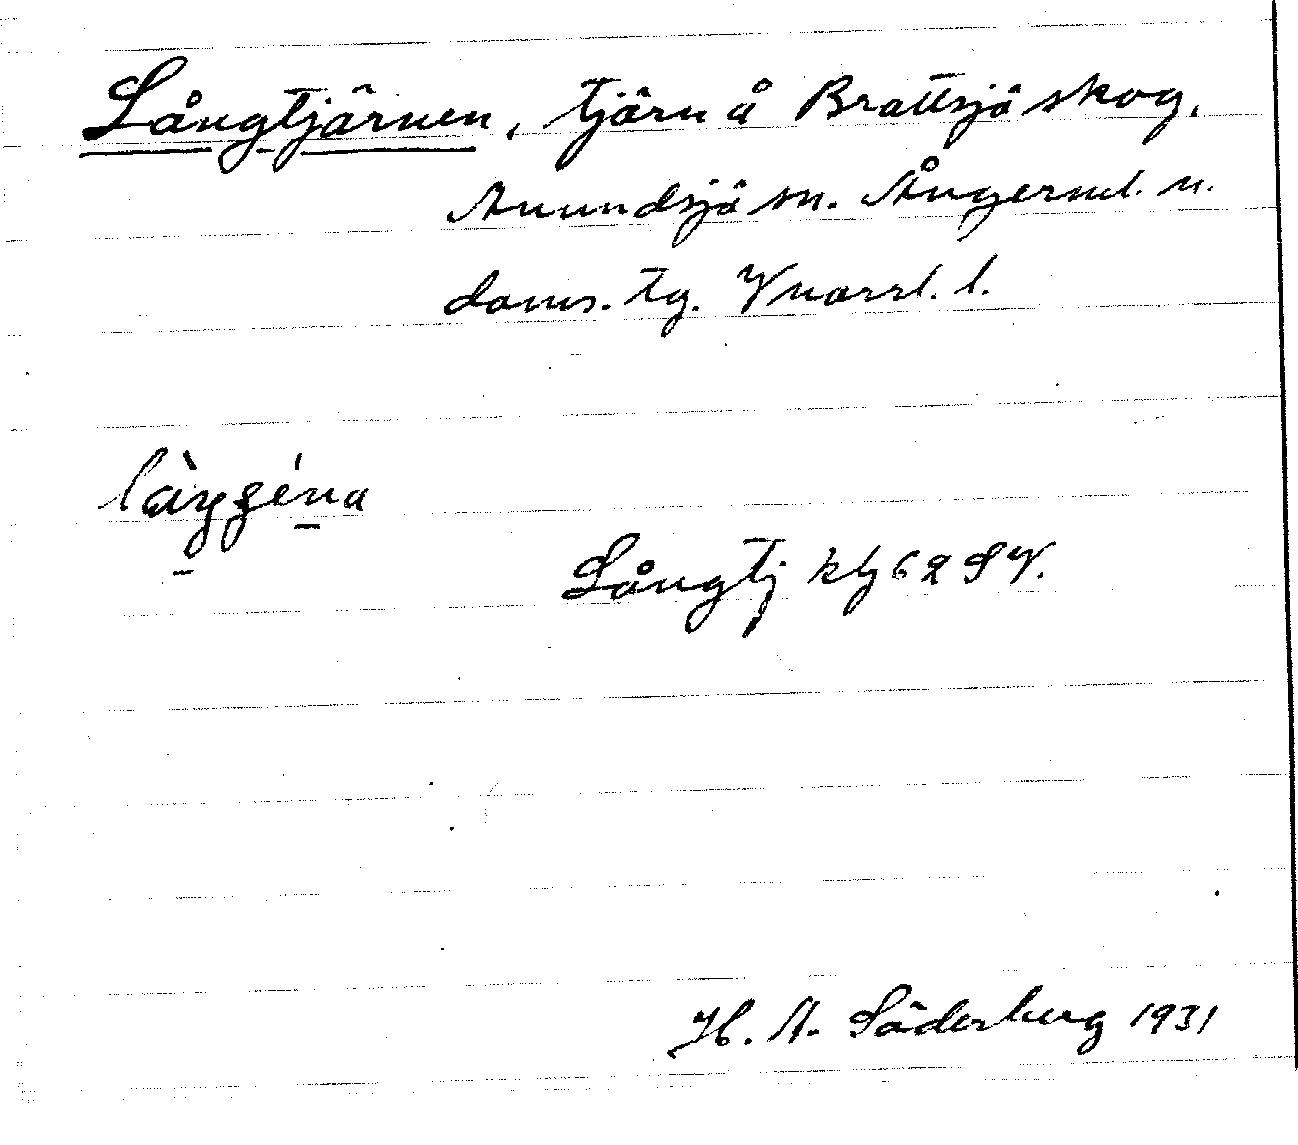 Långtjärnen, tjärn å Brattsjö skog,
Anundsjö sn. Ångerml. n.
doms. tg. Vnorrl. l.
Långtj kbl 62 SV.
H. A. Söderberg 1931